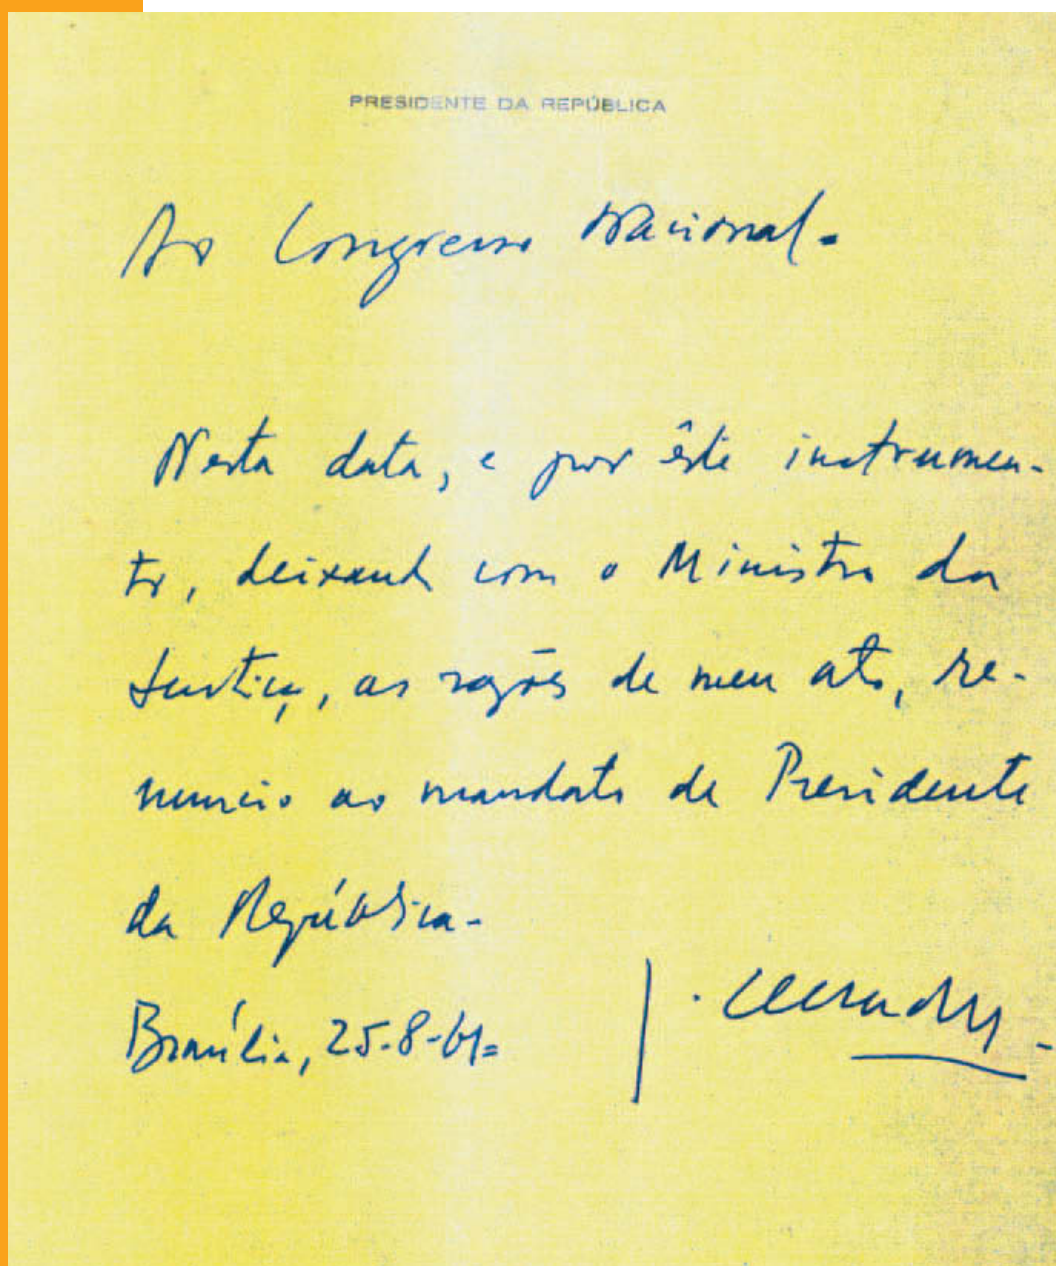 PRESIDENTE DA REPÚBLICA
Ao Congresso Nacional.
Nesta data, e por êste instrumen-
to, deixando com o Ministro da
Justiça, as razões de meu ato, re-
nuncio ao mandato de Presidente
da República-
Brasília, 25-8-61=
J. Quadros.